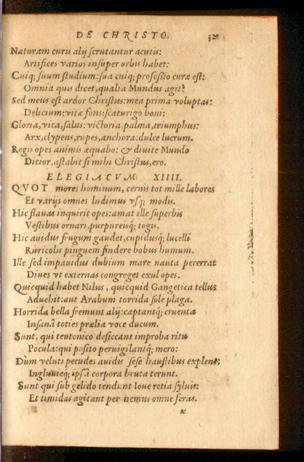 DE CHRISTO.
Naturam curii alij scrutantur acutis:
Artifices varios insuper orbis habet:
Cuiq; suum studium: sua cuiq; professio curæ est:
Omnia quis dicet, qualia Mundus agit?
Sed meus est ardor Christus: mea prima voluptas:
Delicium: vitæ fons: scaturigo boni:
Gloria, vita, salus: victoria, palma, triumphus:
Arx, clypeus, rupes, anchora: dulce lucrum.
Regis opes animis æquabo: & diuite Mundo
Ditior, astabit si mihi Christus, ero.
ELEGIACVM XIIII.
QVOT mores hominum, cernis tot mille labores
Et varijs omnes ludimus vsq; modis.
Hic flauas inquirit opes: amat ille superbis
Vestibus ornari, purpureisq; togis.
Hic auidus frugum gaudet, cupidusq; lucelli
Ruricolis pinguem findere bobus humum.
Ille sed impauidus dubium mare nauta pererrat
Diues vt externas congreget exul opes.
Quicquid habet Nilus, quicquid Gangetica tellus
Aduehit: aut Arabum torrida sole plaga.
Horrida bella fremunt alij: captantq; cruenta
Insanâ toties prælia voce ducum.
Sunt, qui teutonico desiccant improba ritu
Pocula: qui posito peruigilantq; mero:
Dum veluti pecudes auidis sese haustibus explent:
Ingluuieq; ipsâ corpora bruta terunt.
Sunt qui sub gelido tendunt Ioue retia syluis:
Et timidas agitant per nemus omne feras.